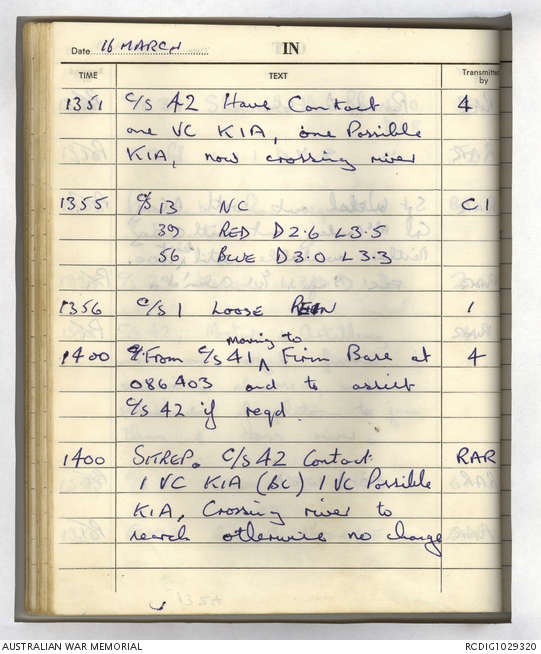 Date 16 MARCH IN
TIME TEXT Transmitted by
1351 C/S 42 Have Contact 4
one VC KIA, one Possible
KIA, now crossing river
1355 C/S 13 NC C.1
39 RED D2.6 L3.5
56 BLUE D3.0 L3.3
1356 C/S 1 LOOSE 1
moving to
1400 From C/S 41 ^ Firm Base at 4
086403 and to assist
C/S 42 if reqd.
1400 SITREP. C/S 42 Contact RAR
1 VC KIA (BC) 1 VC Possible
KIA, Crossing river to
search otherwise no change
AUSTRALIAN WAR MEMORIAL RCDIG1029320